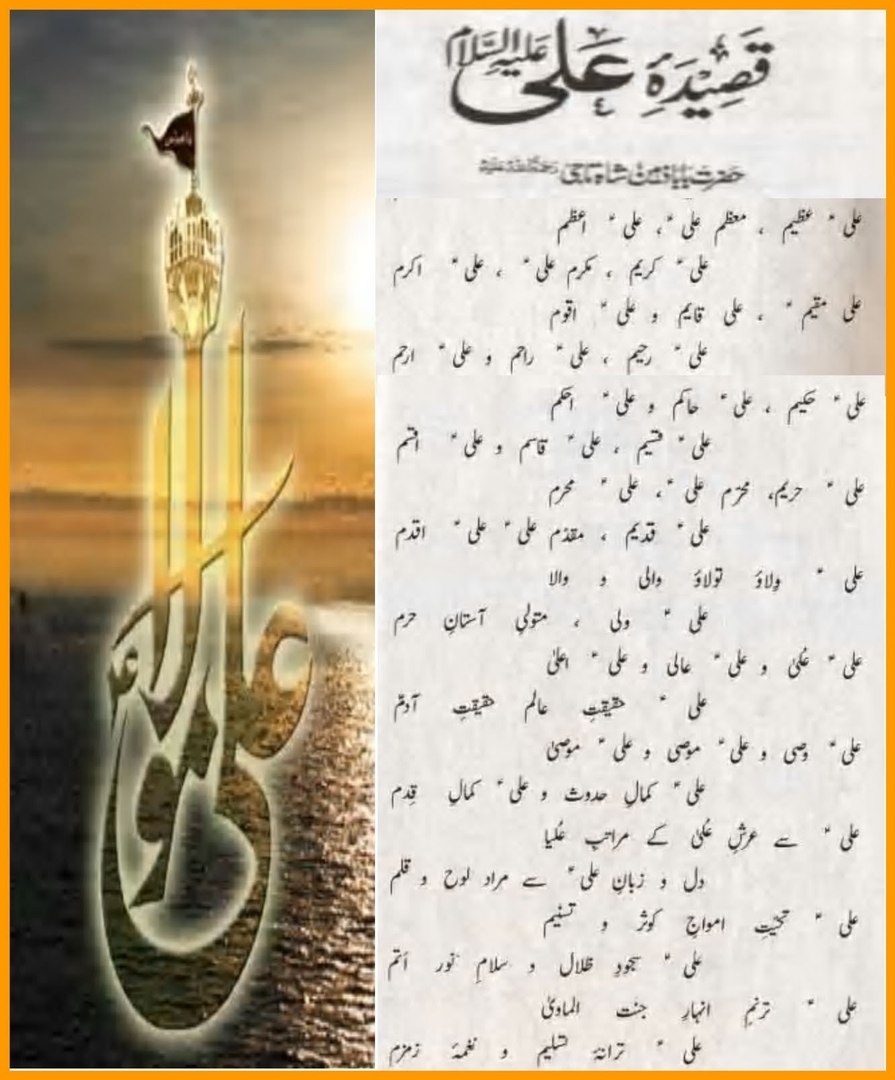 قصیدۂ علی علیہ السلام
حضرت بابا ذہین شاہ تاجی رحمۃ اللہ علیہ
علیؑ عظیم ، معظم علیؑ، علیؑ اعظم
علیؑ کریم ، مکرم علیؑ ، علیؑ اکرم
علی مقیمؑ ، علی قایم و علیؑ اقوم
علیؑ رحیم ، علیؑ راحم و علیؑ ارحم
علیؑ حکیم ، علیؑ حاکم و علیؑ احکم
علیؑ قسیم ، علیؑ قاسم و علیؑ اقسم
علیؑ حریم، محرّم علیؑ، علیؑ محرم
علیؑ قدیم ، مقدّم علیؑ علیؑ اقدم
علیؑ وِلاؤ تولاؤ والی و والا
علیؑ ولی ، متولیِ آستانِ حرم
علیؑ عُلیٰ و علیؑ عالی و علیؑ اعلیٰ
علیؑ حقیقتِ عالم حقیقتِ آدمؑ
علیؑ وصی و علیؑ موصی و علیؑ موصیٰ
علیؑ کمالِ حدوث و علیؑ کمالِ قِدم
علیؑ سے عرشِ عُلیٰ کے مراتبِ عُلیا
دل و زبانِ علیؑ سے مراد لوح و قلم
علیؑ تحیّتِ امواجِ کوثر و تسنیم
علیؑ سجودِ ظلال و سلامِ نور اَتم
علیؑ ترنمِ انہارِ جنت الماویٰ
علیؑ ترانۂ تسلیم و نغمۂ زمزم
علی مولا